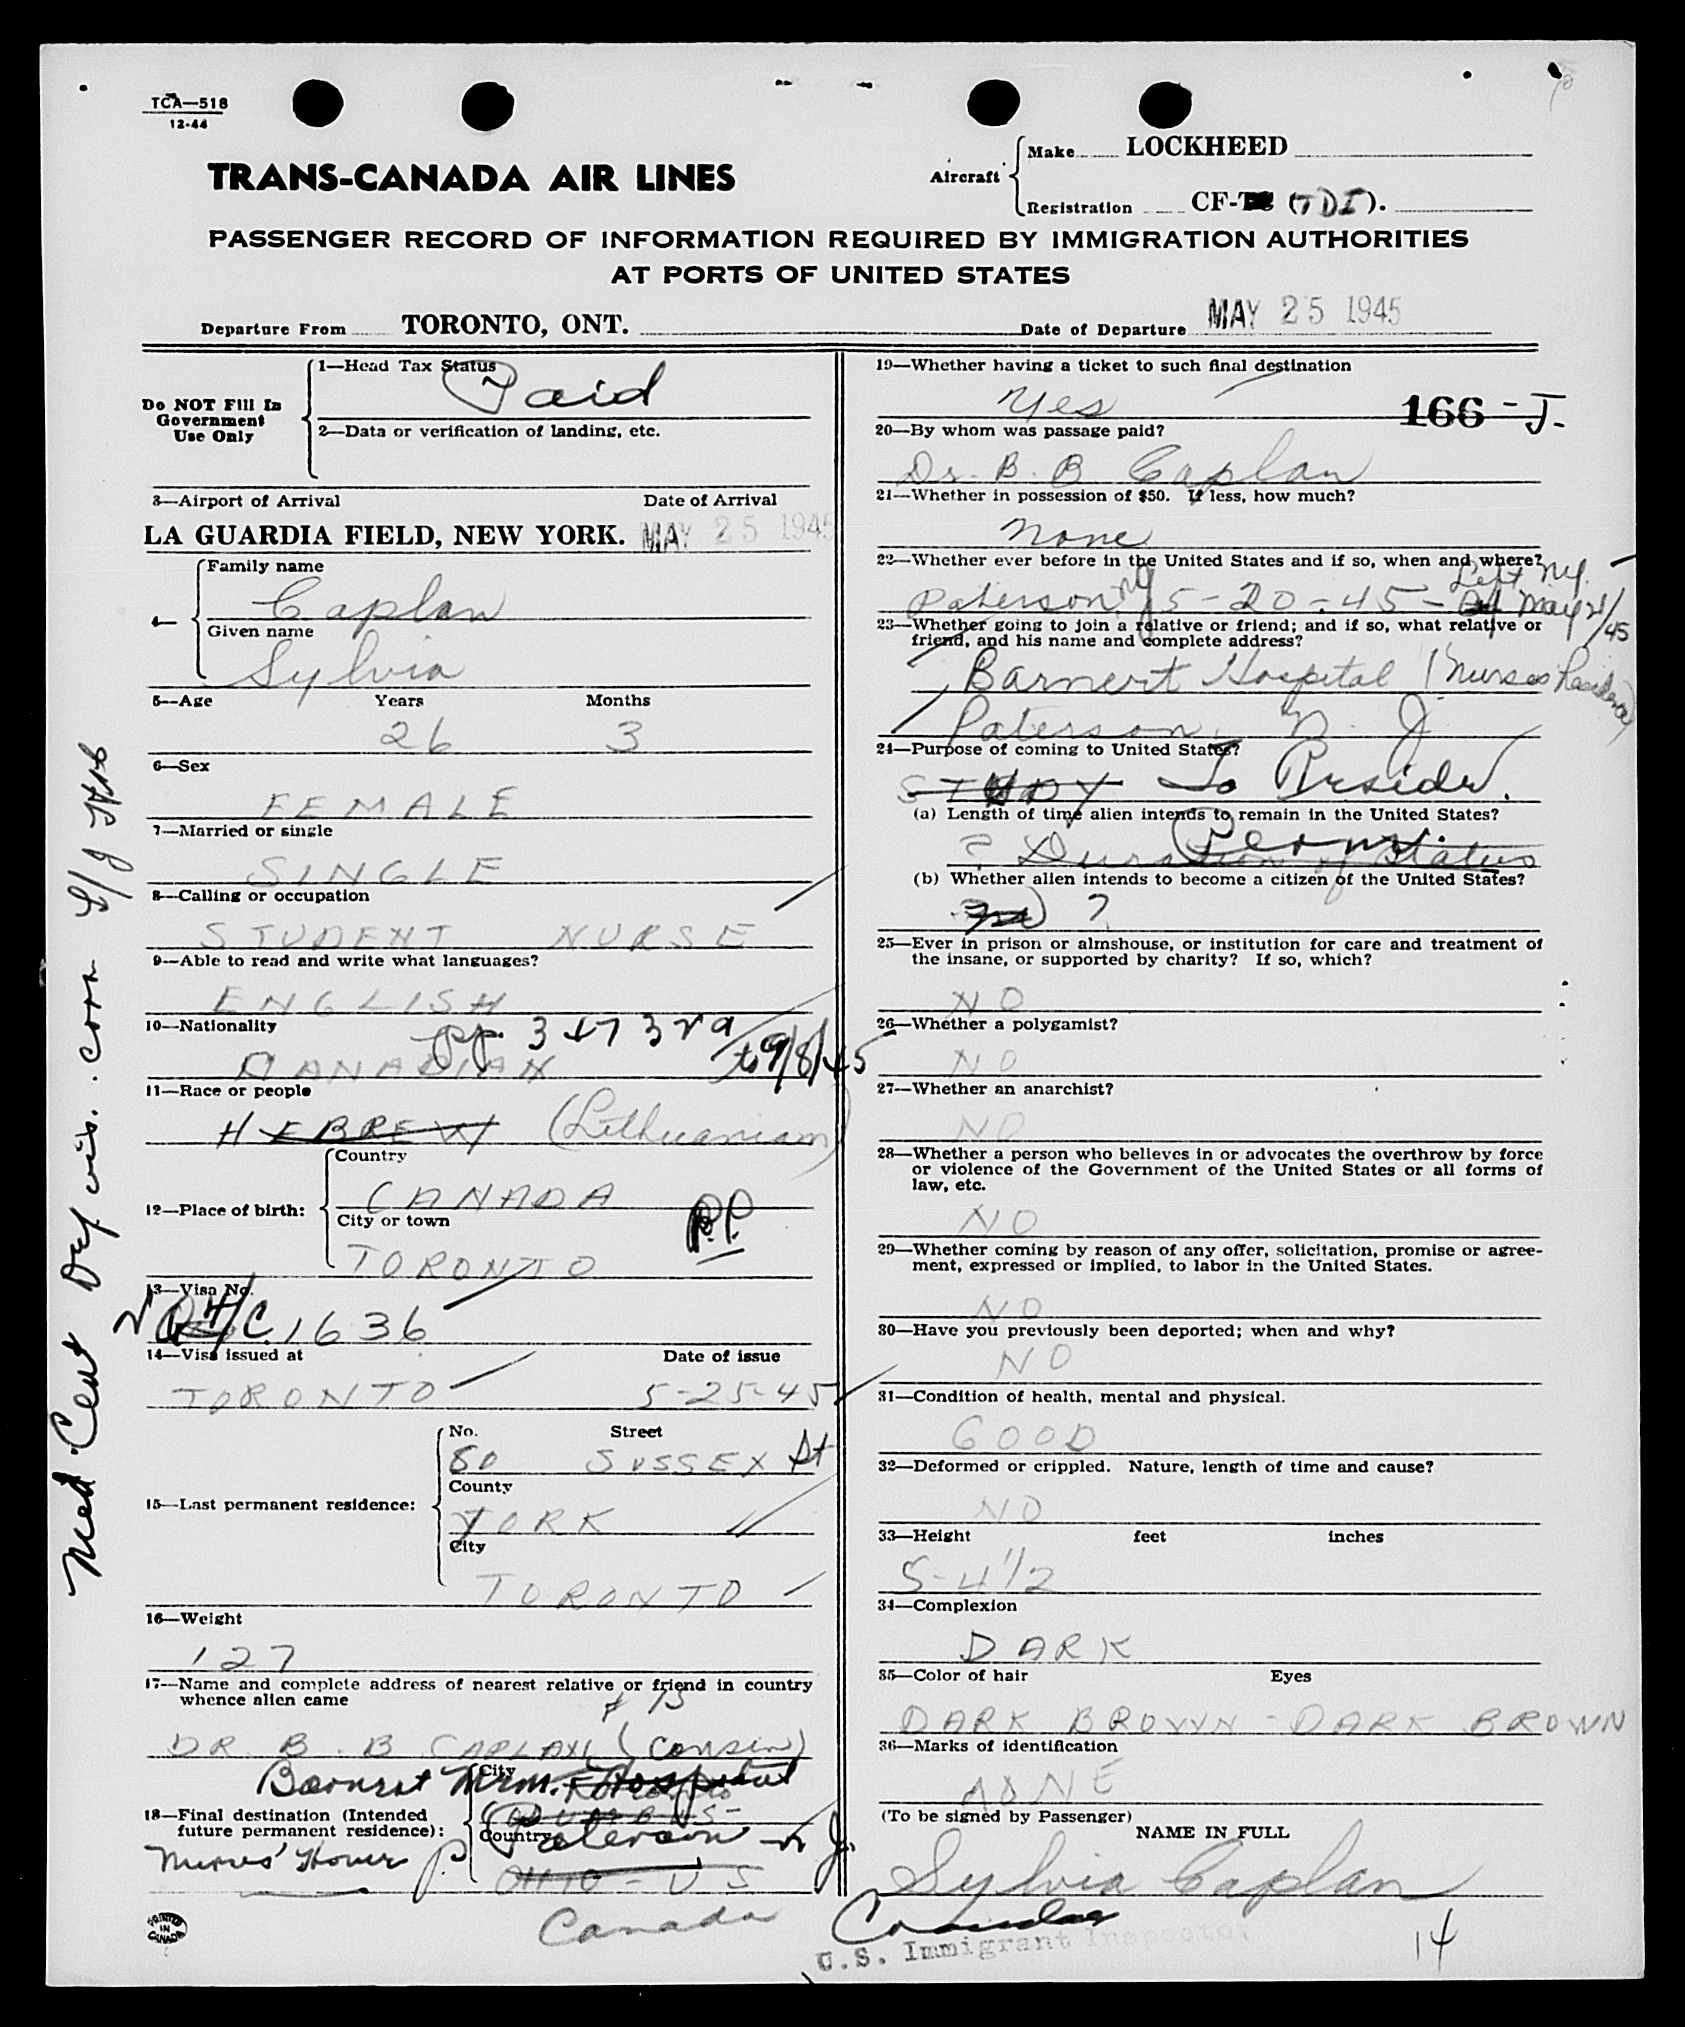 TCA—518
12-44
TRANS-CANADA AIR LINES
Aircraft
Make LOCKHEED
Registration CF- (TDI).
PASSENGER RECORD OF INFORMATION REQUIRED BY IMMIGRATION AUTHORITIES
AT PORTS OF UNITED STATES
Departure From TORONTO, ONT. Date of Departure MAY 25 1945
Do NOT Fill In
Government
Use Only
1—Head Tax Status
Paid
2—Data or verification of landing, etc.
3—Airport of Arrival Date of Arrival
LA GUARDIA FIELD, NEW YORK. MAY 25 1945
4—
Family name
Caplan
Given name
Sylvia
5—Age Years Months
26 3
6—Sex
FEMALE
7—Married or single
SINGLE
8—Calling or occupation
STUDENT NURSE
9—Able to read and write what languages?
ENGLISH
10—Nationality
pp. 3
CANADIAN to 9/8/45
11—Race or people
HEBREW (Lithuanian)
12—Place of birth:
Country
CANADA
City or town
TORONTO
P.P.
13—Visa No.
1636
14—Visa issued at Date of issue
TORONTO 5-25-45
15—Last permanent residence:
No. Street
80 SUSSEX St
County
YORK
City
TORONTO
16—Weight
127
17—Name and complete address of nearest relative or friend in country
whence alien came
DR. B. B CAPLAN (cousin)
Barnert Mem. Hospital
18—Final destination (Intended
future permanent residence):
City
COLUMBUS
Country
Paterson N J.
Nurses' Home
OHIO - US
Canada
PRINTED
IN
CANADA
19—Whether having a ticket to such final destination
Yes
166 - J.
20—By whom was passage paid?
Dr. B. B Caplan
21—Whether in possession of $50. If less, how much?
None
22—Whether ever before in the United States and if so, when and where?
Left N.Y.
Paterson NJ 5-20-45 - May 21/45
23—Whether going to join a relative or friend; and if so, what relative or
friend, and his name and complete address?
Barnert Hospital (Nurses Residence)
Paterson, N. J.
24—Purpose of coming to United States?
STUDY To Reside.
(a) Length of time alien intends to remain in the United States?
Perm.
? Duration of Status
(b) Whether alien intends to become a citizen of the United States?
?
25—Ever in prison or almshouse, or institution for care and treatment of
the insane, or supported by charity? If so, which?
NO
26—Whether a polygamist?
NO
27—Whether an anarchist?
NO
28—Whether a person who believes in or advocates the overthrow by force
or violence of the Government of the United States or all forms of
law, etc.
NO
29—Whether coming by reason of any offer, solicitation, promise or agree-
ment, expressed or implied, to labor in the United States.
NO
30—Have you previously been deported; when and why?
NO
31—Condition of health, mental and physical.
GOOD
32—Deformed or crippled. Nature, length of time and cause?
NO
33—Height feet inches
5-4 1/2
34—Complexion
DARK
35—Color of hair Eyes
DARK BROWN - DARK BROWN
36—Marks of identification
NONE
(To be signed by Passenger)
NAME IN FULL
Sylvia Caplan
U.S. Immigrant Inspector.
14
Med. Cert Def vis.